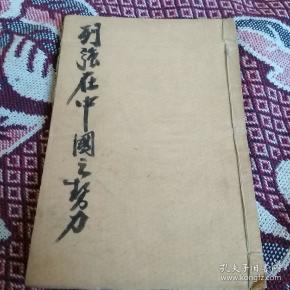 列强在中國之势力
孔夫子旧书网